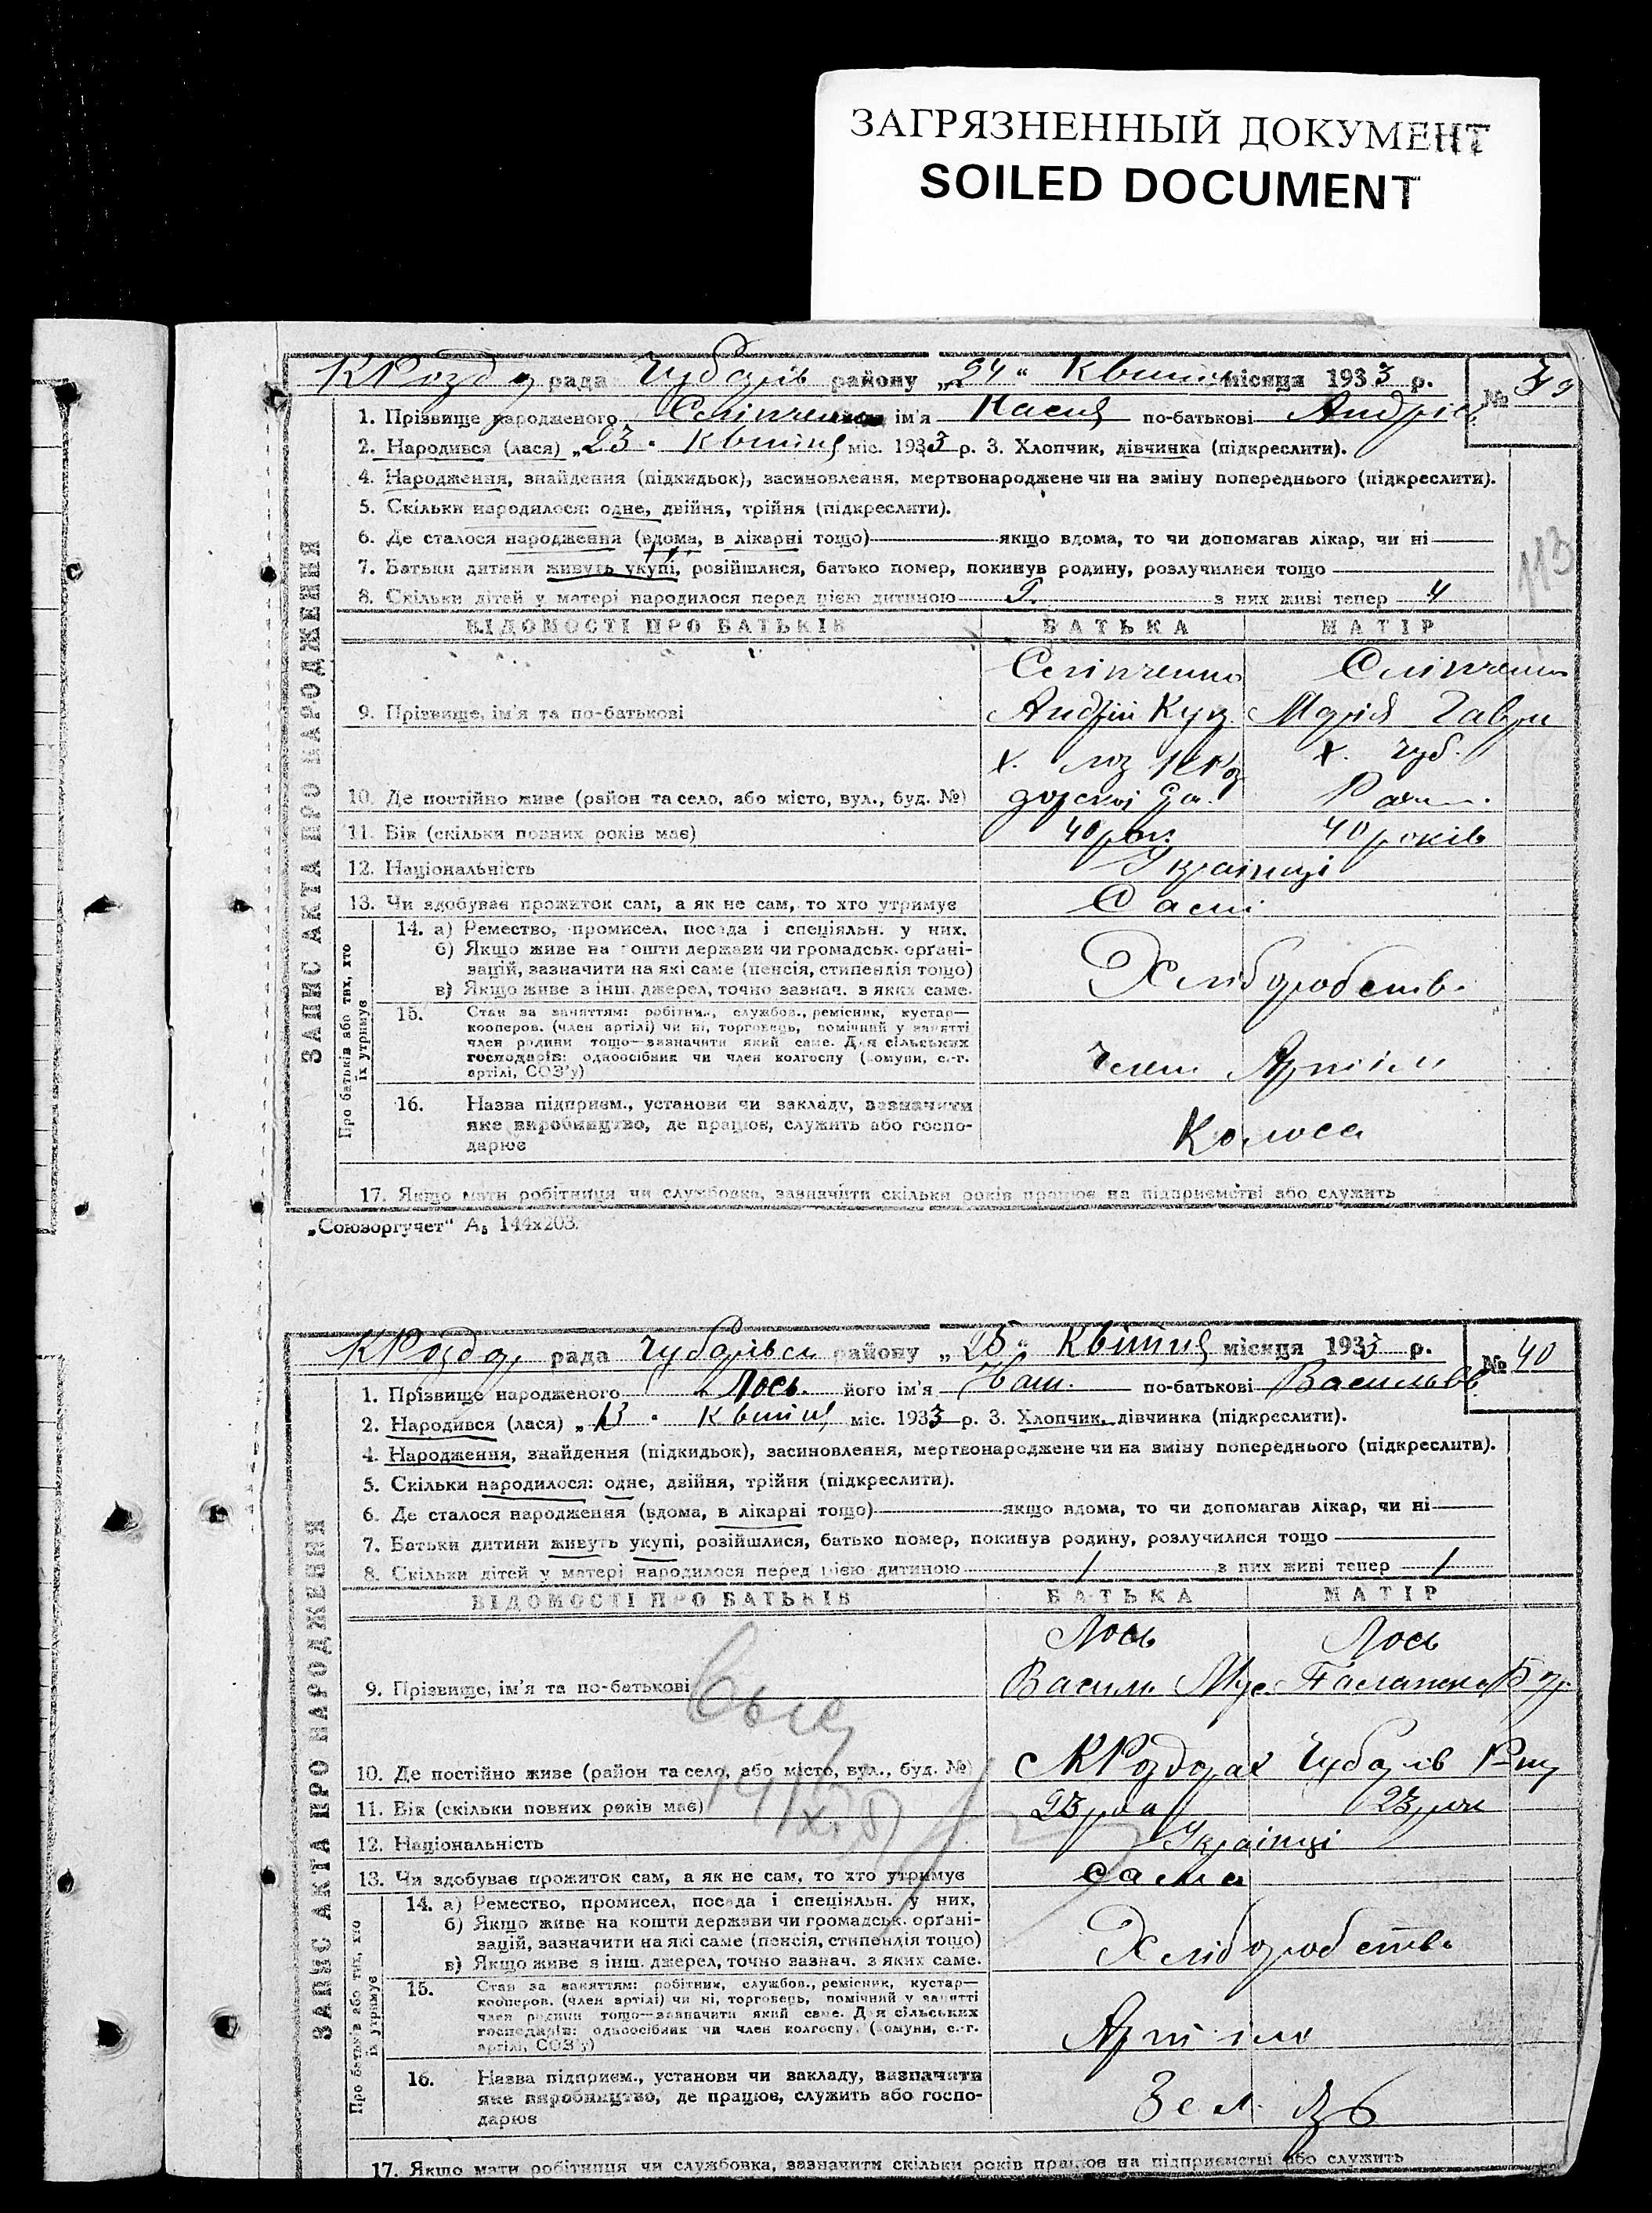 ЗАГРЯЗНЕННЫЙ ДОКУМЕНТ
SOILED DOCUMENT
рада районе „24“ Квітня місяця 1933 р. № 39
1. Прізвище народженого ім'я по-батькові Андрієв
2. Народився (лася) „23“ Квітня міс. 1933 р. 3. Хлопчик, дівчинка (підкреслити).
4. Народження, знайдення (підкидьок), засиновлення, мертвонароджене чи на зміну попереднього (підкреслити).
5. Скільки народилося: одне, двійня, трійня (підкреслити).
6. Де сталося народження (вдома, в лікарні тощо) якщо вдома, то чи допомагав лікар, чи ні
7. Батьки дитини живуть укупі, розійшлися, батько помер, покинув родину, розлучилися тощо
113
8. Скільки дітей у матері народилося перед цією дитиною 9. з них живі тепер 4
ВІДОМОСТІ ПРО БАТЬКІВ БАТЬКА МАТІР
Сліпченко Сліпченко
9. Прізвище, ім'я та по-батькові Андрій Марія Гаври
х. х. Чуб.
10. Де постійно живе (район та село, або місто, вул., буд. №)
11. Вік (скільки повних років має) 40 рок. 40 років
12. Національність Українці
13. Чи здобуває прожиток сам, а як не сам, то хто утримує Самі
14. а) Ремество, промисел, посада і спеціяльн. у них.
б) Якщо живе на кошти держави чи громадськ. орґані-
зацій, зазначити на які саме (пенсія, стипендія тощо) Хліборобств.
в) Якщо живе з інш. джерел, точно зазнач. з яких саме.
15. Стан за заняттям: робітник, службов., ремісник, кустар—
кооперов. (член артілі) чи ні, торговець, помічний у занятті
член родини тощо—зазначити який саме. Для сільських
господарів: одноосібник чи член колгоспу (комуни, с.-г.
артілі, СОЗ'у)
Член Артілі
16. Назва підприєм., установи чи закладу, зазначити
яке виробництво, де працює, служить або госпо-
дарює
17. Якщо мати робітниця чи службовка, зазначити скільки років працює на підприємстві або служить
„Союзоргучет“ А₅ 144х203.
ЗАПИС АКТА ПРО НАРОДЖЕННЯ
Про батьків або тих, хто
їх утримує
рада районе „25“ Квітня місяця 1933 р. № 40
1. Прізвище народженого Лось його ім'я Іван. по-батькові Васильов
2. Народився (лася) „13“ Квітня міс. 1933 р. 3. Хлопчик, дівчинка (підкреслити).
4. Народження, знайдення (підкидьок), засиновлення, мертвонароджене чи на зміну попереднього (підкреслити).
5. Скільки народилося: одне, двійня, трійня (підкреслити).
6. Де сталося народження (вдома, в лікарні тощо) якщо вдома, то чи допомагав лікар, чи ні
7. Батьки дитини живуть укупі, розійшлися, батько помер, покинув родину, розлучилися тощо
8. Скільки дітей у матері народилося перед цією дитиною 1 з них живі тепер 1
ВІДОМОСТІ ПРО БАТЬКІВ БАТЬКА МАТІР
Лось Лось
9. Прізвище, ім'я та по-батькові Васил.
10. Де постійно живе (район та село, або місто, вул., буд. №) с КРоздорах
11. Вік (скільки повних років має) 23 23
12. Національність Українці
13. Чи здобуває прожиток сам, а як не сам, то хто утримує
14. а) Ремество, промисел, посада і спеціяльн. у них.
б) Якщо живе на кошти держави чи громадськ. орґані-
зацій, зазначити на які саме (пенсія, стипендія тощо) Хліборобств.
в) Якщо живе з інш. джерел, точно зазнач. з яких саме.
15. Стан за заняттям: робітник, службов., ремісник, кустар—
кооперов. (член артілі) чи ні, торговець, помічний у занятті
член родини тощо—зазначити який саме. Для сільських
господарів: одноосібник чи член колгоспу (комуни, с.-г.
артілі, СОЗ'у)
16. Назва підприєм., установи чи закладу, зазначити
яке виробництво, де працює, служить або госпо-
дарює
17. Якщо мати робітниця чи службовка, зазначити скільки років працює на підприємстві або служить
ЗАПИС АКТА ПРО НАРОДЖЕННЯ
Про батьків або тих, хто
їх утримує